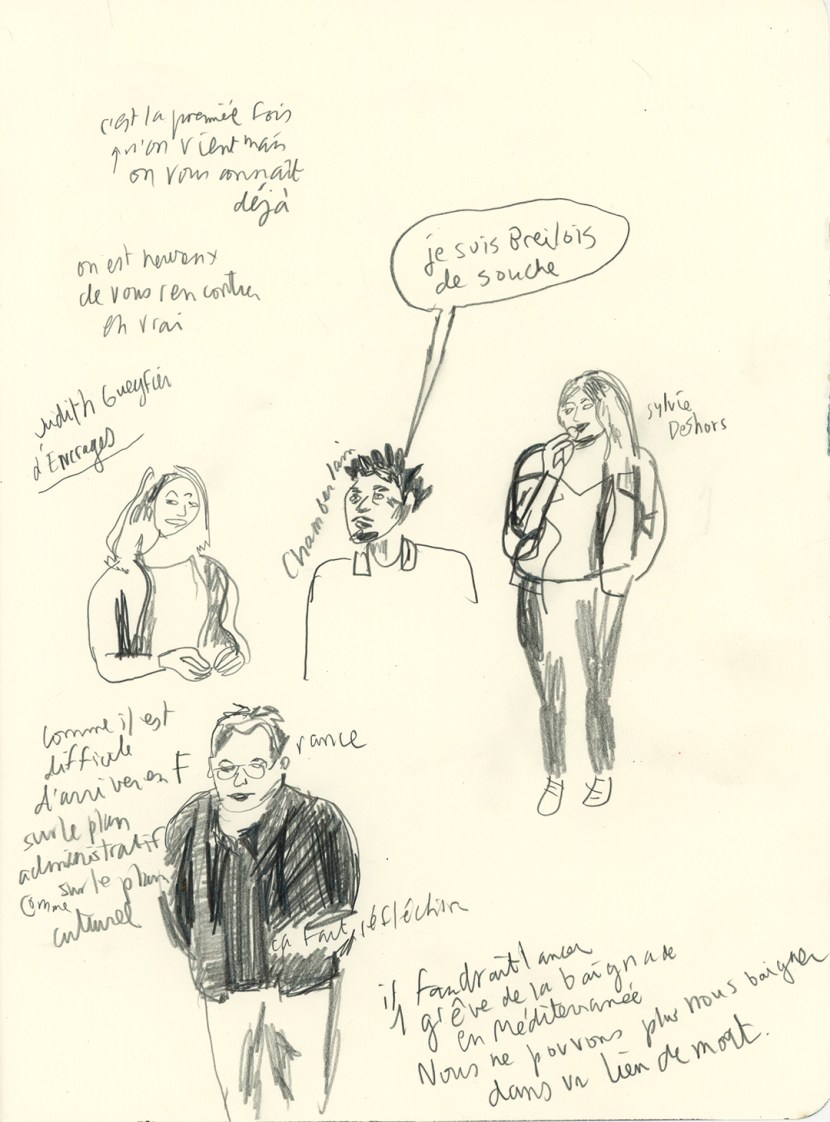 c'est la première fois
qu'on vient mais
on vous connaît
déjà
on est heureux
de vous rencontrer
en vrai
Judith Gueyfier
d'Encrages
je suis Breilois
de souche
Chamberlain
sylvie
Deshors
Comme il est
difficile
d'arriver en France
sur le plan
administratif
comme sur le plan
culturel
ça fait réfléchir
il faudrait lancer
1 grève de la baignade
en Méditerranée
Nous ne pouvons plus nous baigner
dans un lieu de mort.